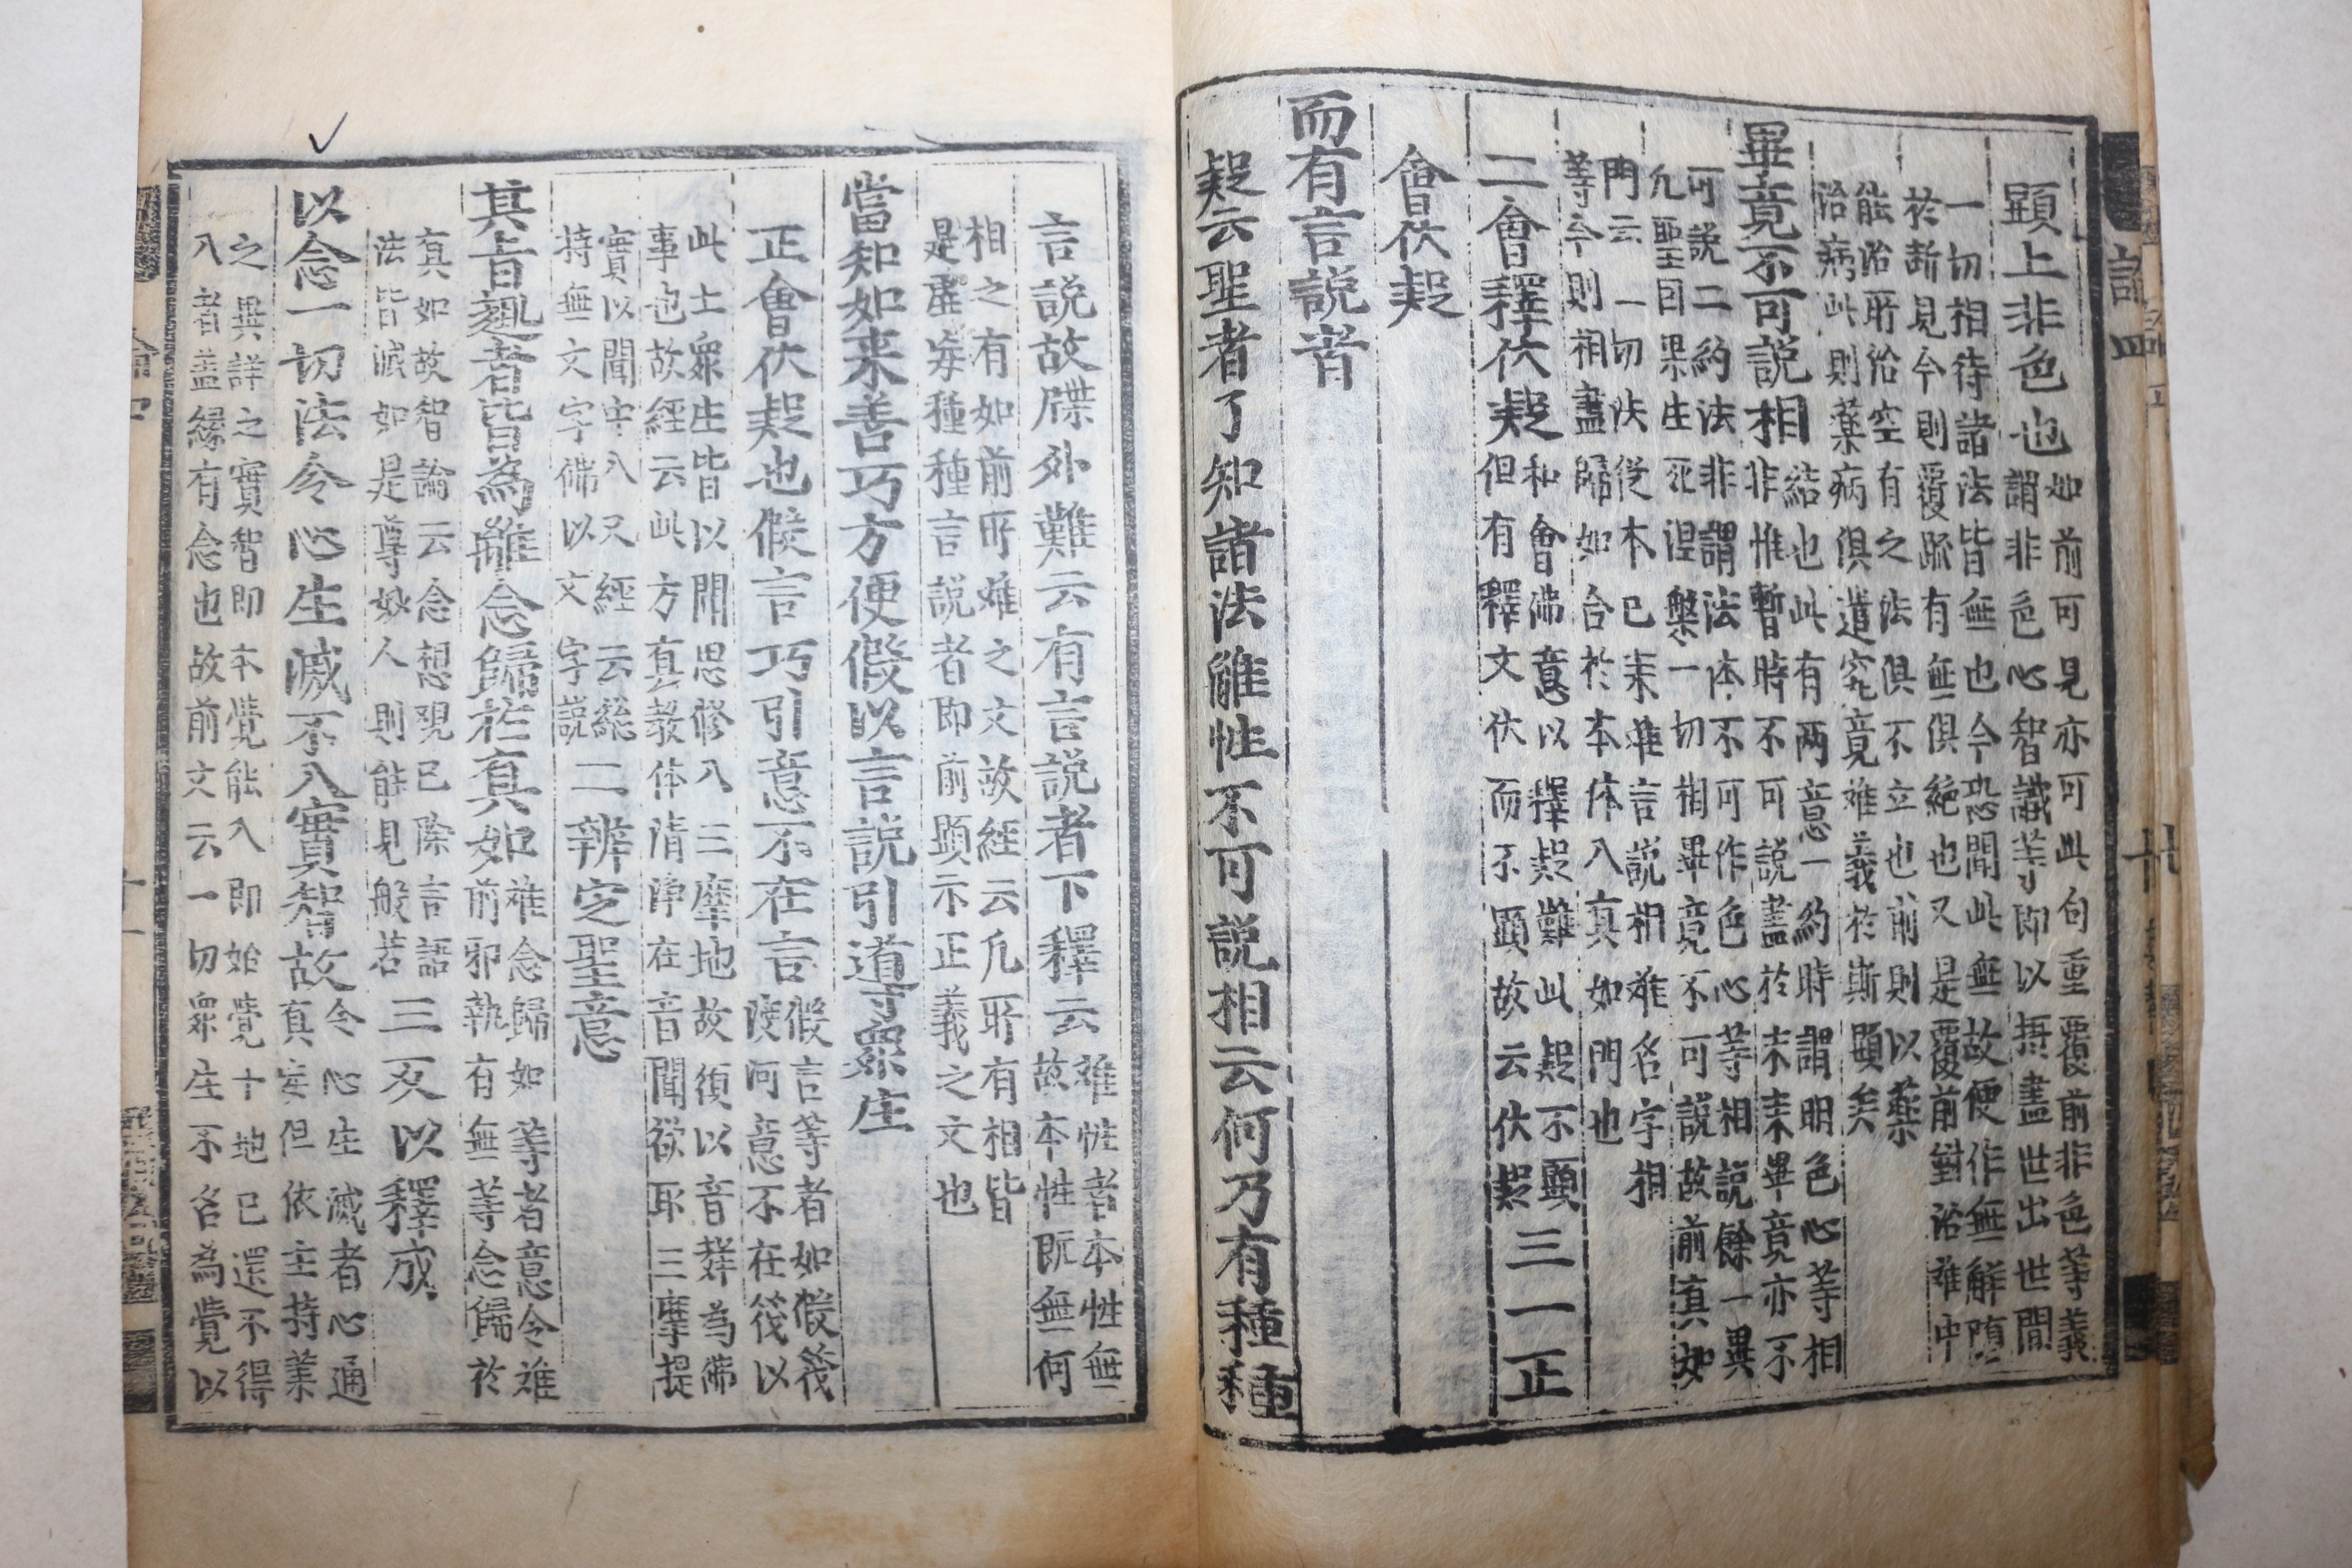 顯上非色也如前可見亦可此句重覆前非色等義
謂非色心智識等即以揀盡世出世間
一切相待諸法皆無也今恐聞此無故便作無解墮
於斷見今則覆疏有無俱絕也又是覆前對治雖中
能治所治空有之法俱不立也前則以藥
治病此則藥病俱遣究竟難義於斯顯矣
畢竟不可說相結也此有兩意一約時謂明色心等相
非惟暫時不可說盡於未來畢竟亦不
可說二約法非謂法体不可作色心等相說餘一異
凡聖因果生死涅槃一切相畢竟不可說故前真如
門云一切法從本已来離言說相離名字相
等今則相盡歸如合於本体入真如門也
二會釋伏疑和會佛意以釋疑難此疑不顯
但有釋文伏而不顯故云伏疑三一正
會伏疑
而有言說者
疑云聖者了知諸法離性不可說相云何乃有種種
言說故牒外難云有言說者下釋云離性者本性無
故本性既無何
相之有如前所难之文故經云凡所有相皆
是虛妄種種言說者即前顯示正義之文也
當知如来善巧方便假以言說引導眾生
正會伏疑也假言巧引意不在言假言等者如假筏
度河意不在筏以
此土眾生皆以聞思修入三摩地故須以音聲為佛
事也故經云此方真教体清淨在音聞欲取三摩提
實以聞中入又經云總
持無文字佛以文字說二辨定聖意
其旨趣者皆為離念歸於真如离念歸如等者意令雖
前邪執有無等念歸於
真如故智論云念想觀已除言語
法皆滅如是尊妙人則能見般若三反以釋成
以念一切法令心生滅不入實智故令心生滅者心通
真妄但依主持業
之異詳之實智即本覺能入即始覺十地已還不得
入者盖緣有念也故前文云一切眾生不名為覺以